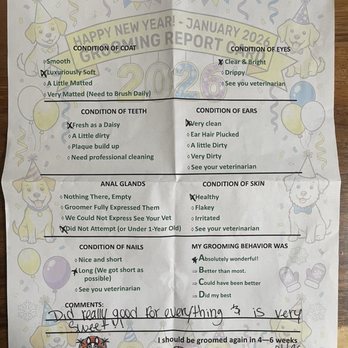 HAPPY NEW YEAR! - JANUARY 2026
GROOMING REPORT CARD
2026
CONDITION OF COAT
Smooth
Luxuriously Soft
A Little Matted
Very Matted (Need to Brush Daily)
CONDITION OF EYES
Clear & Bright
Drippy
See you veterinarian
CONDITION OF TEETH
Fresh as a Daisy
A Little dirty
Plaque build up
Need professional cleaning
CONDITION OF EARS
Very clean
Ear Hair Plucked
A little Dirty
Very Dirty
See your veterinarian
ANAL GLANDS
Nothing There, Empty
Groomer Fully Expressed Them
We Could Not Express See Your Vet
Did Not Attempt (or Under 1-Year Old)
CONDITION OF SKIN
Healthy
Flakey
Irritated
See your veterinarian
CONDITION OF NAILS
Nice and short
Long (We got short as
possible)
See you veterinarian
MY GROOMING BEHAVIOR WAS
Absolutely wonderful!
Better than most.
Could have been better
Did my best
COMMENTS:
Did really good for everything & is very
sweet!
I should be groomed again in 4—6 weeks